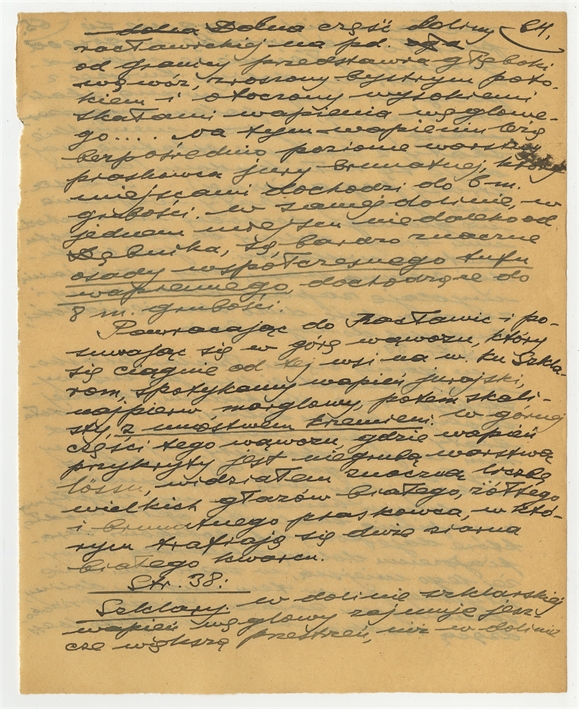 Dolna część doliny 84.
racławickiej na pd.
od granicy przedstawia głęboki
wąwóz, zroszony bystrym poto-
kiem i otoczony wysokiemi
skałami wapienia węglowe-
go.... na tym wapieniu leżą
bezpośrednio poziome warstwy
piaskowca jury brunatnej, które
miejscami dochodzi do 6 m.
grubości. W samej dolinie, w
jednem miejscu niedaleko od
Dębnika, są bardzo znaczne
osady współczesnego tufu
wapiennego, dochodzące do
8 m. grubości.
Powracając do Racławic i po-
suwając się w górę wąwozu, który
się ciągnie od tej wsi na w. ku Szkla-
rom, spotykamy wapień jurajski,
najpierw marglowy, potem skali-
sty, z mnóstwem krzemieni. W górnej
części tego wąwozu, gdzie wapień
przykryty jest niegrubą warstwą
lössu, widziałem znaczną liczbę
wielkich głazów białego, żółtego
i brunatnego piaskowca, w któ-
rym trafiają się duże ziarna
białego kwarcu.
Str. 38:
Szklary. W dolinie szklarskiej
wapień węglowy zajmuje jesz-
cze większą przestrzeń, niż w dolinie